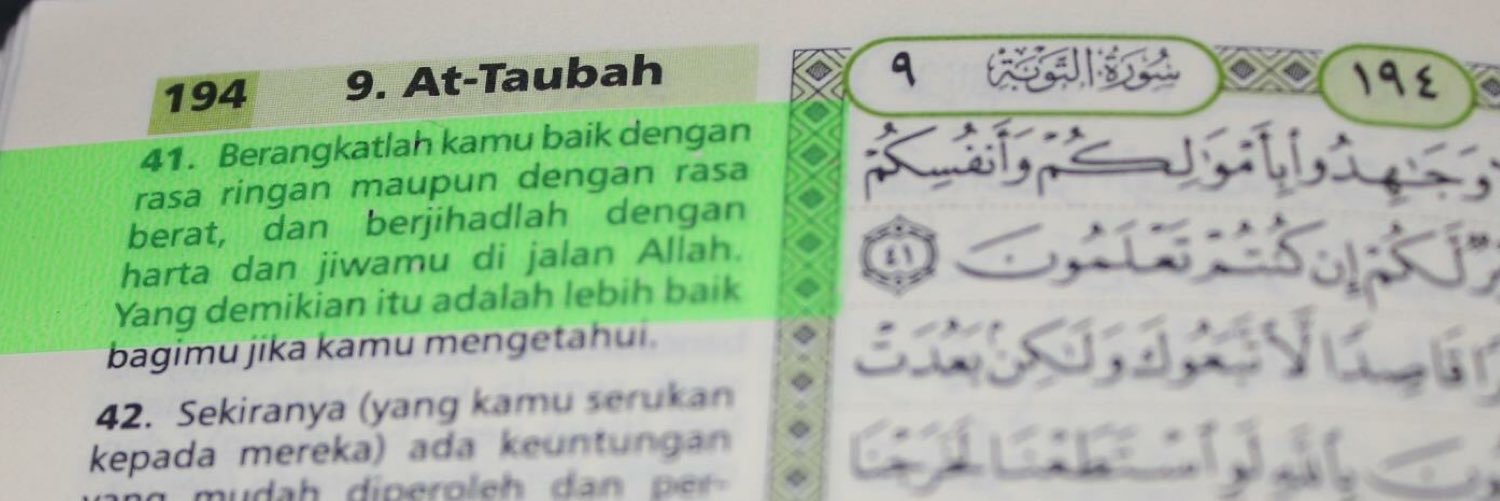 194 9. At-Taubah
41. Berangkatlah kamu baik dengan
rasa ringan maupun dengan rasa
berat, dan berjihadlah dengan
harta dan jiwamu di jalan Allah.
Yang demikian itu adalah lebih baik
bagimu jika kamu mengetahui.
42. Sekiranya (yang kamu serukan
kepada mereka) ada keuntungan
yang mudah diperoleh dan per-
١٩٤ سُورَةُ التَّوْبَةِ ٩
وَجَٰهِدُوا۟ بِأَمْوَٰلِكُمْ وَأَنفُسِكُمْ
لَّكُمْ إِن كُنتُمْ تَعْلَمُونَ ٤١
قَاصِدًا لَّٱتَّبَعُوكَ وَلَٰكِنۢ بَعُدَتْ
بِٱللَّهِ لَوِ ٱسْتَطَعْنَا لَخَرَجْنَا